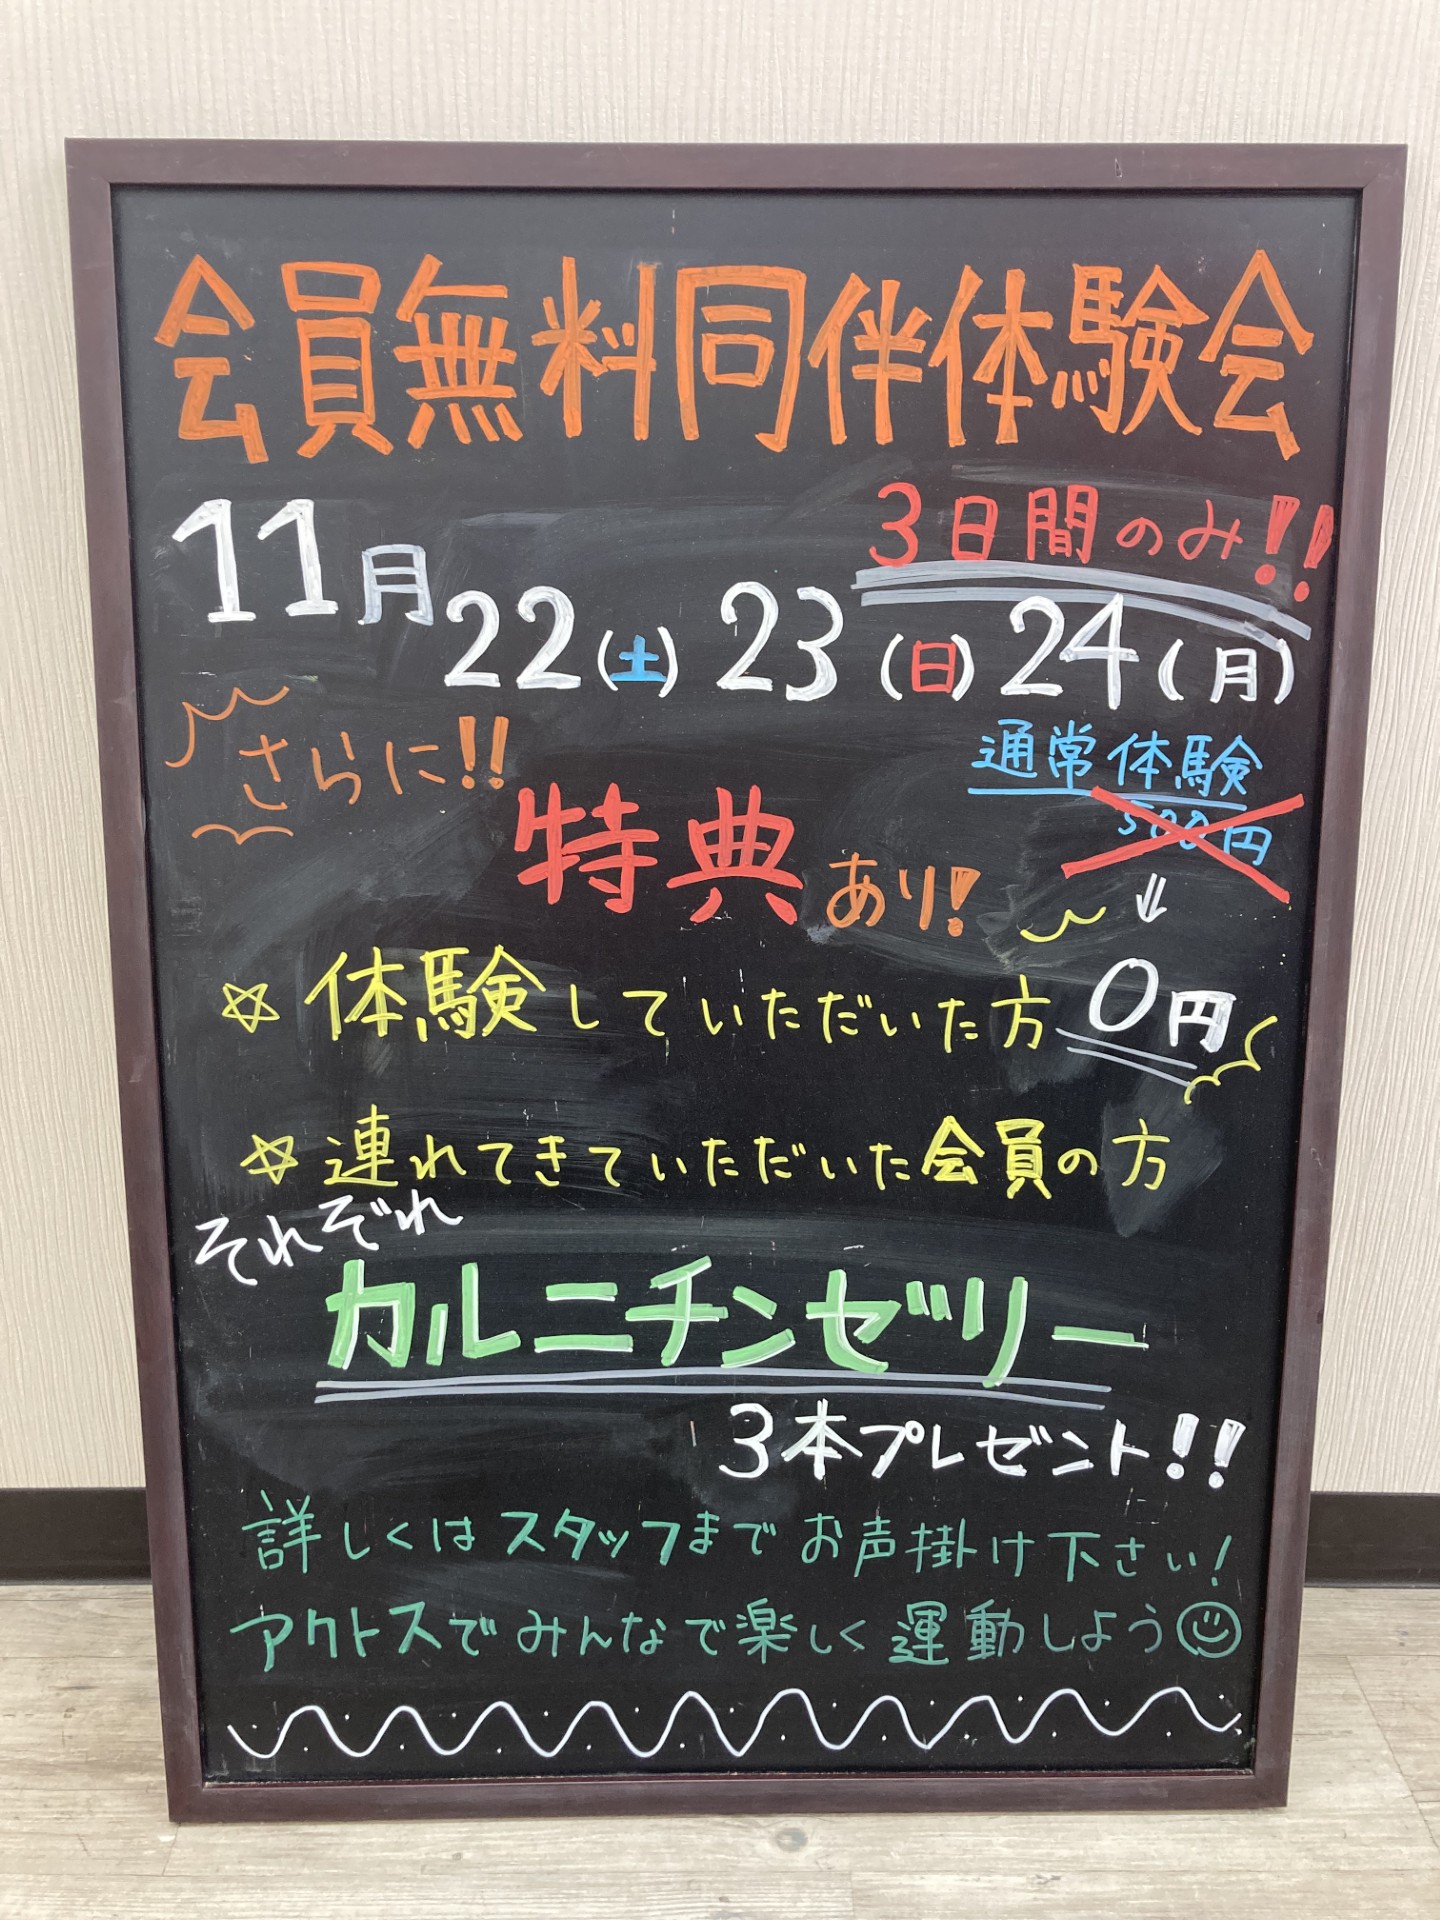 会員無料同伴体験会
3日間のみ!!
11月22(土) 23(日) 24(月)
さらに!!
特典あり!
通常体験
500円
⇓
0円
☆体験していただいた方
☆連れてきていただいた会員の方
それぞれ
カルニチンゼリー
3本プレゼント!!
詳しくはスタッフまでお声掛け下さい!
アクトスでみんなで楽しく運動しよう☺